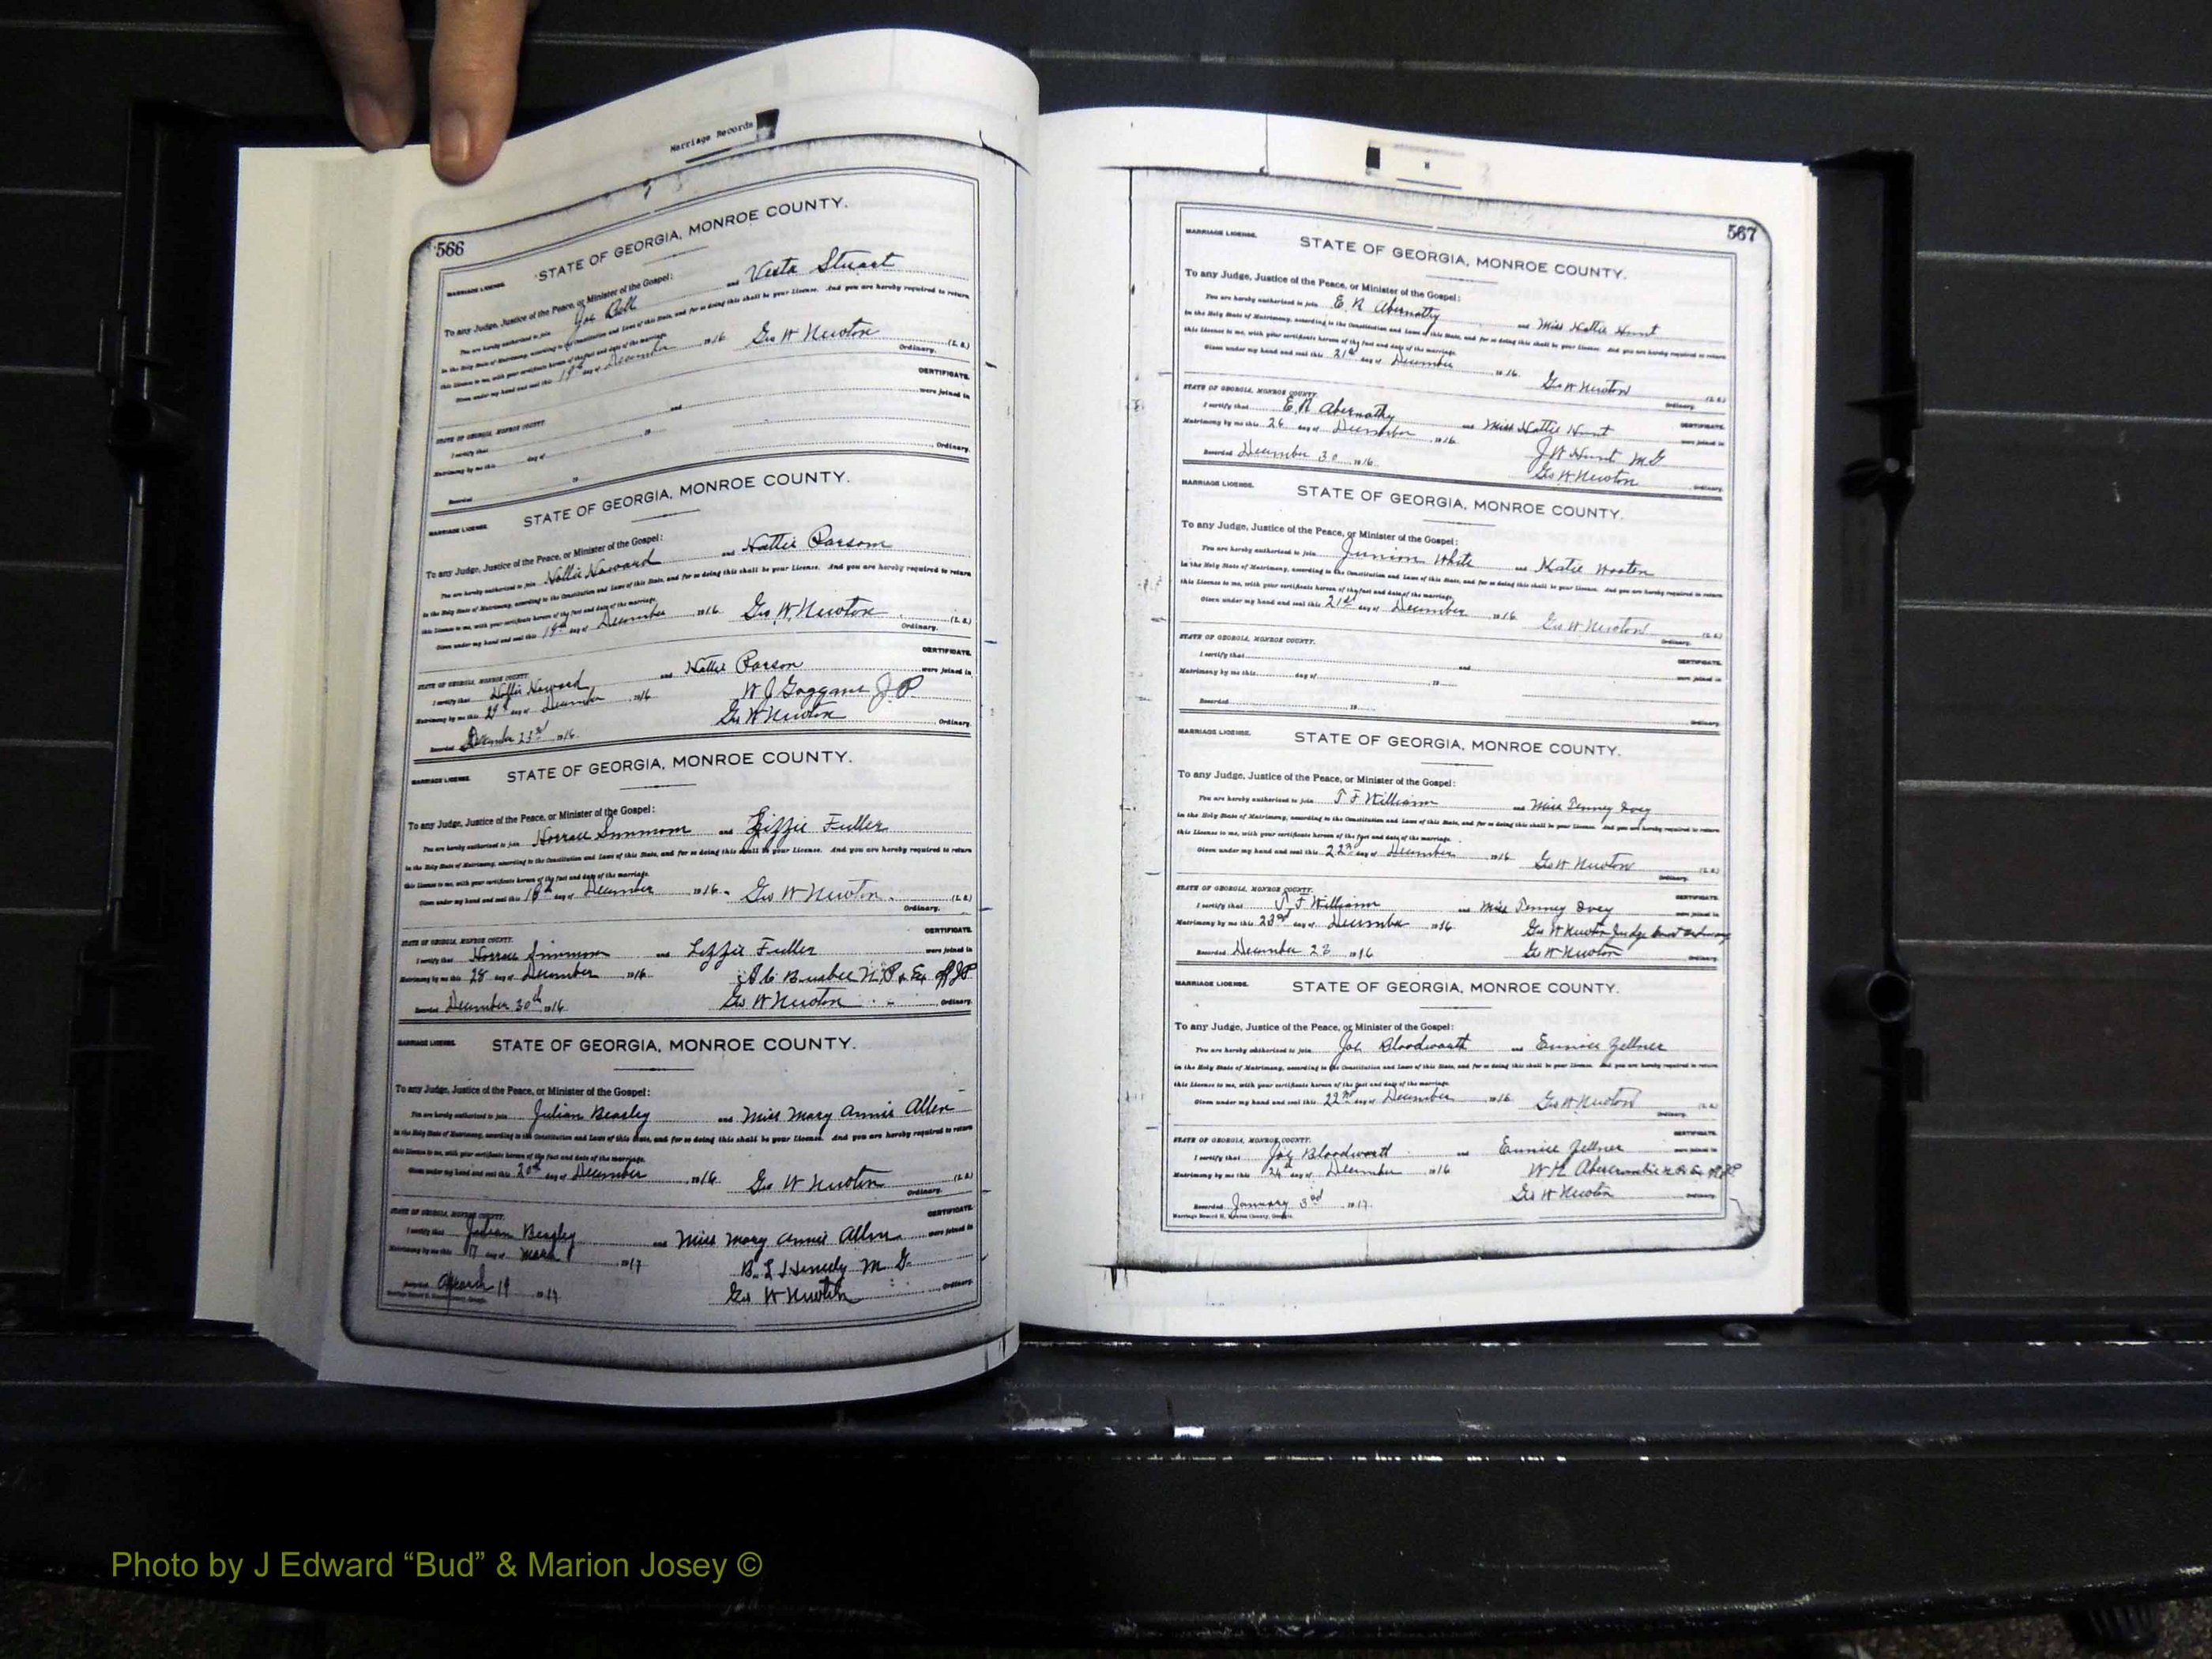 Marriage Records
566
STATE OF GEORGIA, MONROE COUNTY.
MARRIAGE LICENSE.
To any Judge, Justice of the Peace, or Minister of the Gospel:
You are hereby authorized to join Joe Bell and Vesta Stuart
in the Holy State of Matrimony, according to the Constitution and Laws of this State, and for so doing this shall be your License. And you are hereby required to return
this License to me, with your certificate hereon of the fact and date of the marriage.
Given under my hand and seal this 19th day of December 1916 Geo W Newton (L. S.)
Ordinary.
CERTIFICATE.
STATE OF GEORGIA, MONROE COUNTY.
I certify that and were joined in
Matrimony by me this day of 19
Recorded 19 Ordinary.
MARRIAGE LICENSE.
STATE OF GEORGIA, MONROE COUNTY.
To any Judge, Justice of the Peace, or Minister of the Gospel:
You are hereby authorized to join Hollie Howard and Hattie Parsom
in the Holy State of Matrimony, according to the Constitution and Laws of this State, and for so doing this shall be your License. And you are hereby required to return
this License to me, with your certificate hereon of the fact and date of the marriage.
Given under my hand and seal this 19th day of December 1916 Geo W. Newton (L. S.)
Ordinary.
CERTIFICATE.
STATE OF GEORGIA, MONROE COUNTY.
I certify that Hollie Howard and Hattie Parson were joined in
Matrimony by me this day of December 1916 W J Goggans J.P
Geo W Newton Ordinary.
Recorded December 23rd 1916
MARRIAGE LICENSE.
STATE OF GEORGIA, MONROE COUNTY.
To any Judge, Justice of the Peace, or Minister of the Gospel:
You are hereby authorized to join Horrace Simmons and Lizzie Fuller
in the Holy State of Matrimony, according to the Constitution and Laws of this State, and for so doing this shall be your License. And you are hereby required to return
this License to me, with your certificate hereon of the fact and date of the marriage.
Given under my hand and seal this 18th day of December 1916 Geo W Newton (L. S.)
Ordinary.
CERTIFICATE.
STATE OF GEORGIA, MONROE COUNTY.
I certify that Horrace Simmons and Lizzie Fuller were joined in
Matrimony by me this 28 day of December 1916 Busbee N.P. & Ex off J.P.
Recorded December 30th 1916 Geo W Newton Ordinary.
MARRIAGE LICENSE.
STATE OF GEORGIA, MONROE COUNTY.
To any Judge, Justice of the Peace, or Minister of the Gospel:
You are hereby authorized to join Julian Beasley and Miss Mary Annie Allen
in the Holy State of Matrimony, according to the Constitution and Laws of this State, and for so doing this shall be your License. And you are hereby required to return
this License to me, with your certificate hereon of the fact and date of the marriage.
Given under my hand and seal this 20th day of December 1916 Geo W Newton (L. S.)
Ordinary.
CERTIFICATE.
STATE OF GEORGIA, MONROE COUNTY.
I certify that Julian Beasley and Miss Mary Annie Allen were joined in
Matrimony by me this 17 day of March 1917 M G
19 1917 Geo W Newton Ordinary.
567
MARRIAGE LICENSE.
STATE OF GEORGIA, MONROE COUNTY.
To any Judge, Justice of the Peace, or Minister of the Gospel:
You are hereby authorized to join E R Abernathy and Miss Hattie Hunt
in the Holy State of Matrimony, according to the Constitution and Laws of this State, and for so doing this shall be your License. And you are hereby required to return
this License to me, with your certificate hereon of the fact and date of the marriage.
Given under my hand and seal this 21st day of December 1916. Geo W Newton (L. S.)
Ordinary.
STATE OF GEORGIA, MONROE COUNTY.
CERTIFICATE.
I certify that E R Abernathy and Miss Hattie Hunt were joined in
Matrimony by me this 26 day of December 1916 J W Hunt M G
Recorded December 30 1916 Geo W Newton Ordinary.
MARRIAGE LICENSE.
STATE OF GEORGIA, MONROE COUNTY.
To any Judge, Justice of the Peace, or Minister of the Gospel:
You are hereby authorized to join Junior White and Katie Wooten
in the Holy State of Matrimony, according to the Constitution and Laws of this State, and for so doing this shall be your License. And you are hereby required to return
this License to me, with your certificate hereon of the fact and date of the marriage.
Given under my hand and seal this 21st day of December 1916 Geo W Newton (L. S.)
Ordinary.
STATE OF GEORGIA, MONROE COUNTY.
CERTIFICATE.
I certify that and were joined in
Matrimony by me this day of 19
Recorded 19 Ordinary.
MARRIAGE LICENSE.
STATE OF GEORGIA, MONROE COUNTY.
To any Judge, Justice of the Peace, or Minister of the Gospel:
You are hereby authorized to join J F Williams and Miss Penney Ivey
in the Holy State of Matrimony, according to the Constitution and Laws of this State, and for so doing this shall be your License. And you are hereby required to return
this License to me, with your certificate hereon of the fact and date of the marriage.
Given under my hand and seal this 22nd day of December 1916 Geo W Newton (L. S.)
Ordinary.
STATE OF GEORGIA, MONROE COUNTY.
CERTIFICATE.
I certify that J F Williams and Miss Penney Ivey were joined in
Matrimony by me this 23rd day of December 1916 Geo W Newton Judge Court Ordinary
Recorded December 23 1916 Geo W Newton Ordinary.
MARRIAGE LICENSE.
STATE OF GEORGIA, MONROE COUNTY.
To any Judge, Justice of the Peace, or Minister of the Gospel:
You are hereby authorized to join Joe Bloodworth and Eunice Zellner
in the Holy State of Matrimony, according to the Constitution and Laws of this State, and for so doing this shall be your License. And you are hereby required to return
this License to me, with your certificate hereon of the fact and date of the marriage.
Given under my hand and seal this 22nd day of December 1916 Geo W Newton (L. S.)
Ordinary.
STATE OF GEORGIA, MONROE COUNTY.
CERTIFICATE.
I certify that Joe Bloodworth and Eunice Zellner
Matrimony by me this 24th day of December 1916 W H Abercrombie N.P. & Ex off J.P.
Recorded January 3rd 1917 Geo W Newton Ordinary.
Marriage Record H, Monroe County, Georgia.
Photo by J Edward “Bud” & Marion Josey ©